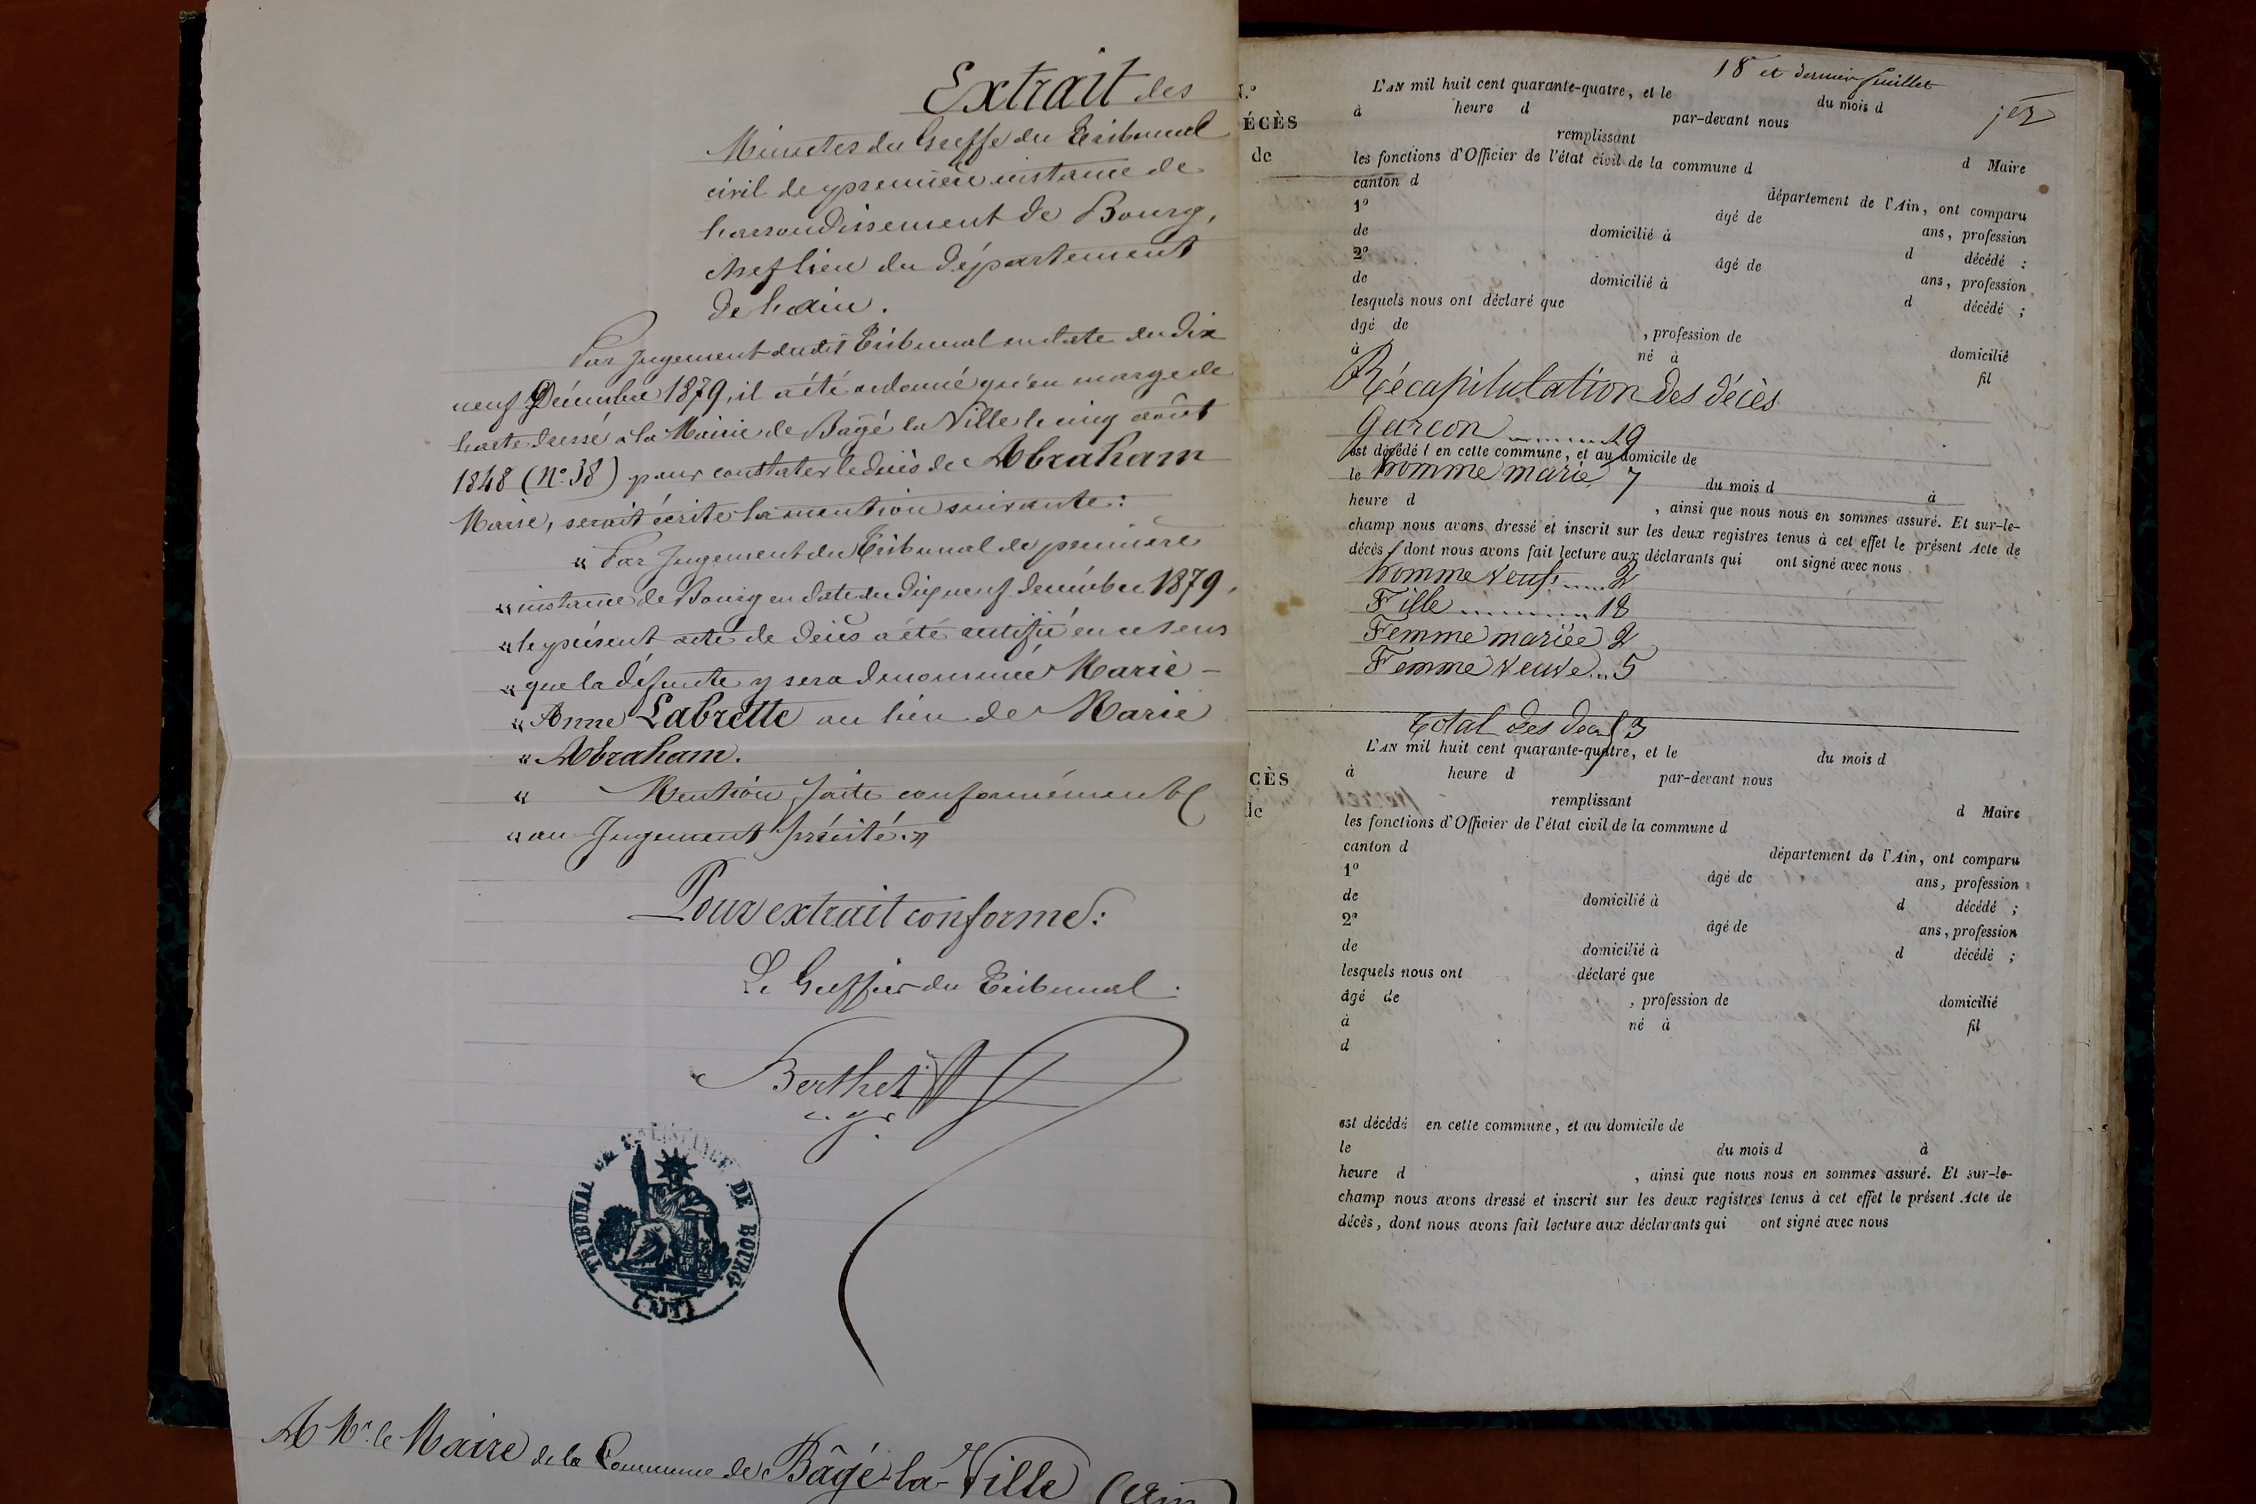 Extrait des
Minutes du Greffe du Tribunal
civil de première instance de
l'arrondissement de Bourg,
chef lieu du département
de l'ain.
Par Jugement dudit Tribunal en date du dix
neuf Décembre 1879, il a été ordonné qu'en marge de
l'acte dressé à la Mairie de Bâgé la Ville le cinq août
1848 (N° 38) pour constater le décès de Abraham
Marie, serait écrite la mention suivante:
« Par Jugement du Tribunal de première
« instance de Bourg en date du dix neuf décembre 1879,
« le présent acte de décès a été rectifié en ce sens
« que la défunte y sera dénommée Marie -
« Anne Labrette au lieu de Marie
« Abraham.
« Mention faite conformément
« au Jugement précité. »
Pour extrait conforme:
Le Greffier du Tribunal.
Berthet
c. g.
TRIBUNAL DE BOURG
(AIN)
A Mr. le Maire de la Commune de Bâgé-la-Ville (Ain)
18 et dernier feuillet
N.°
L'AN mil huit cent quarante-quatre, et le du mois d
ÉCÈS
à heure d par-devant nous
remplissant d Maire
de
les fonctions d'Officier de l'état civil de la commune d
canton d département de l'Ain, ont comparu
1° âgé de ans, profession
de domicilié à d décédé :
2° âgé de ans, profession
de domicilié à d décédé ;
lesquels nous ont déclaré que
âgé de , profession de domicilié
à né à fil
Récapitulation des décès
Garçon 19
est décédé en cette commune, et au domicile de
le homme marié 7 du mois d à
heure d , ainsi que nous nous en sommes assuré. Et sur-le-
champ nous avons dressé et inscrit sur les deux registres tenus à cet effet le présent Acte de
décès, dont nous avons fait lecture aux déclarants qui ont signé avec nous
homme veuf 2
Fille 18
Femme mariée 2
Femme veuve 5
Total des décès 53
L'AN mil huit cent quarante-quatre, et le du mois d
CÈS
à heure d par-devant nous
remplissant d Maire
de
les fonctions d'Officier de l'état civil de la commune d
canton d département de l'Ain, ont comparu
1° âgé de ans, profession
de domicilié à d décédé ;
2° âgé de ans, profession
de domicilié à d décédé ;
lesquels nous ont déclaré que
âgé de , profession de domicilié
à né à fil
d
est décédé en cette commune, et au domicile de
le du mois d à
heure d , ainsi que nous nous en sommes assuré. Et sur-le-
champ nous avons dressé et inscrit sur les deux registres tenus à cet effet le présent Acte de
décès, dont nous avons fait lecture aux déclarants qui ont signé avec nous